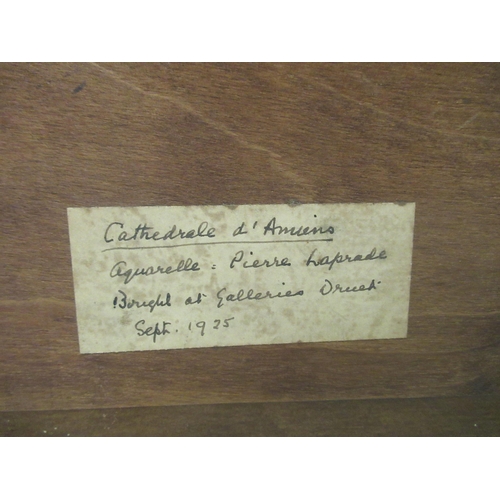 Cathedrale d'Amiens
Aquarelle = Pierre Laprade
Bought at Galleries Druet
Sept. 1925